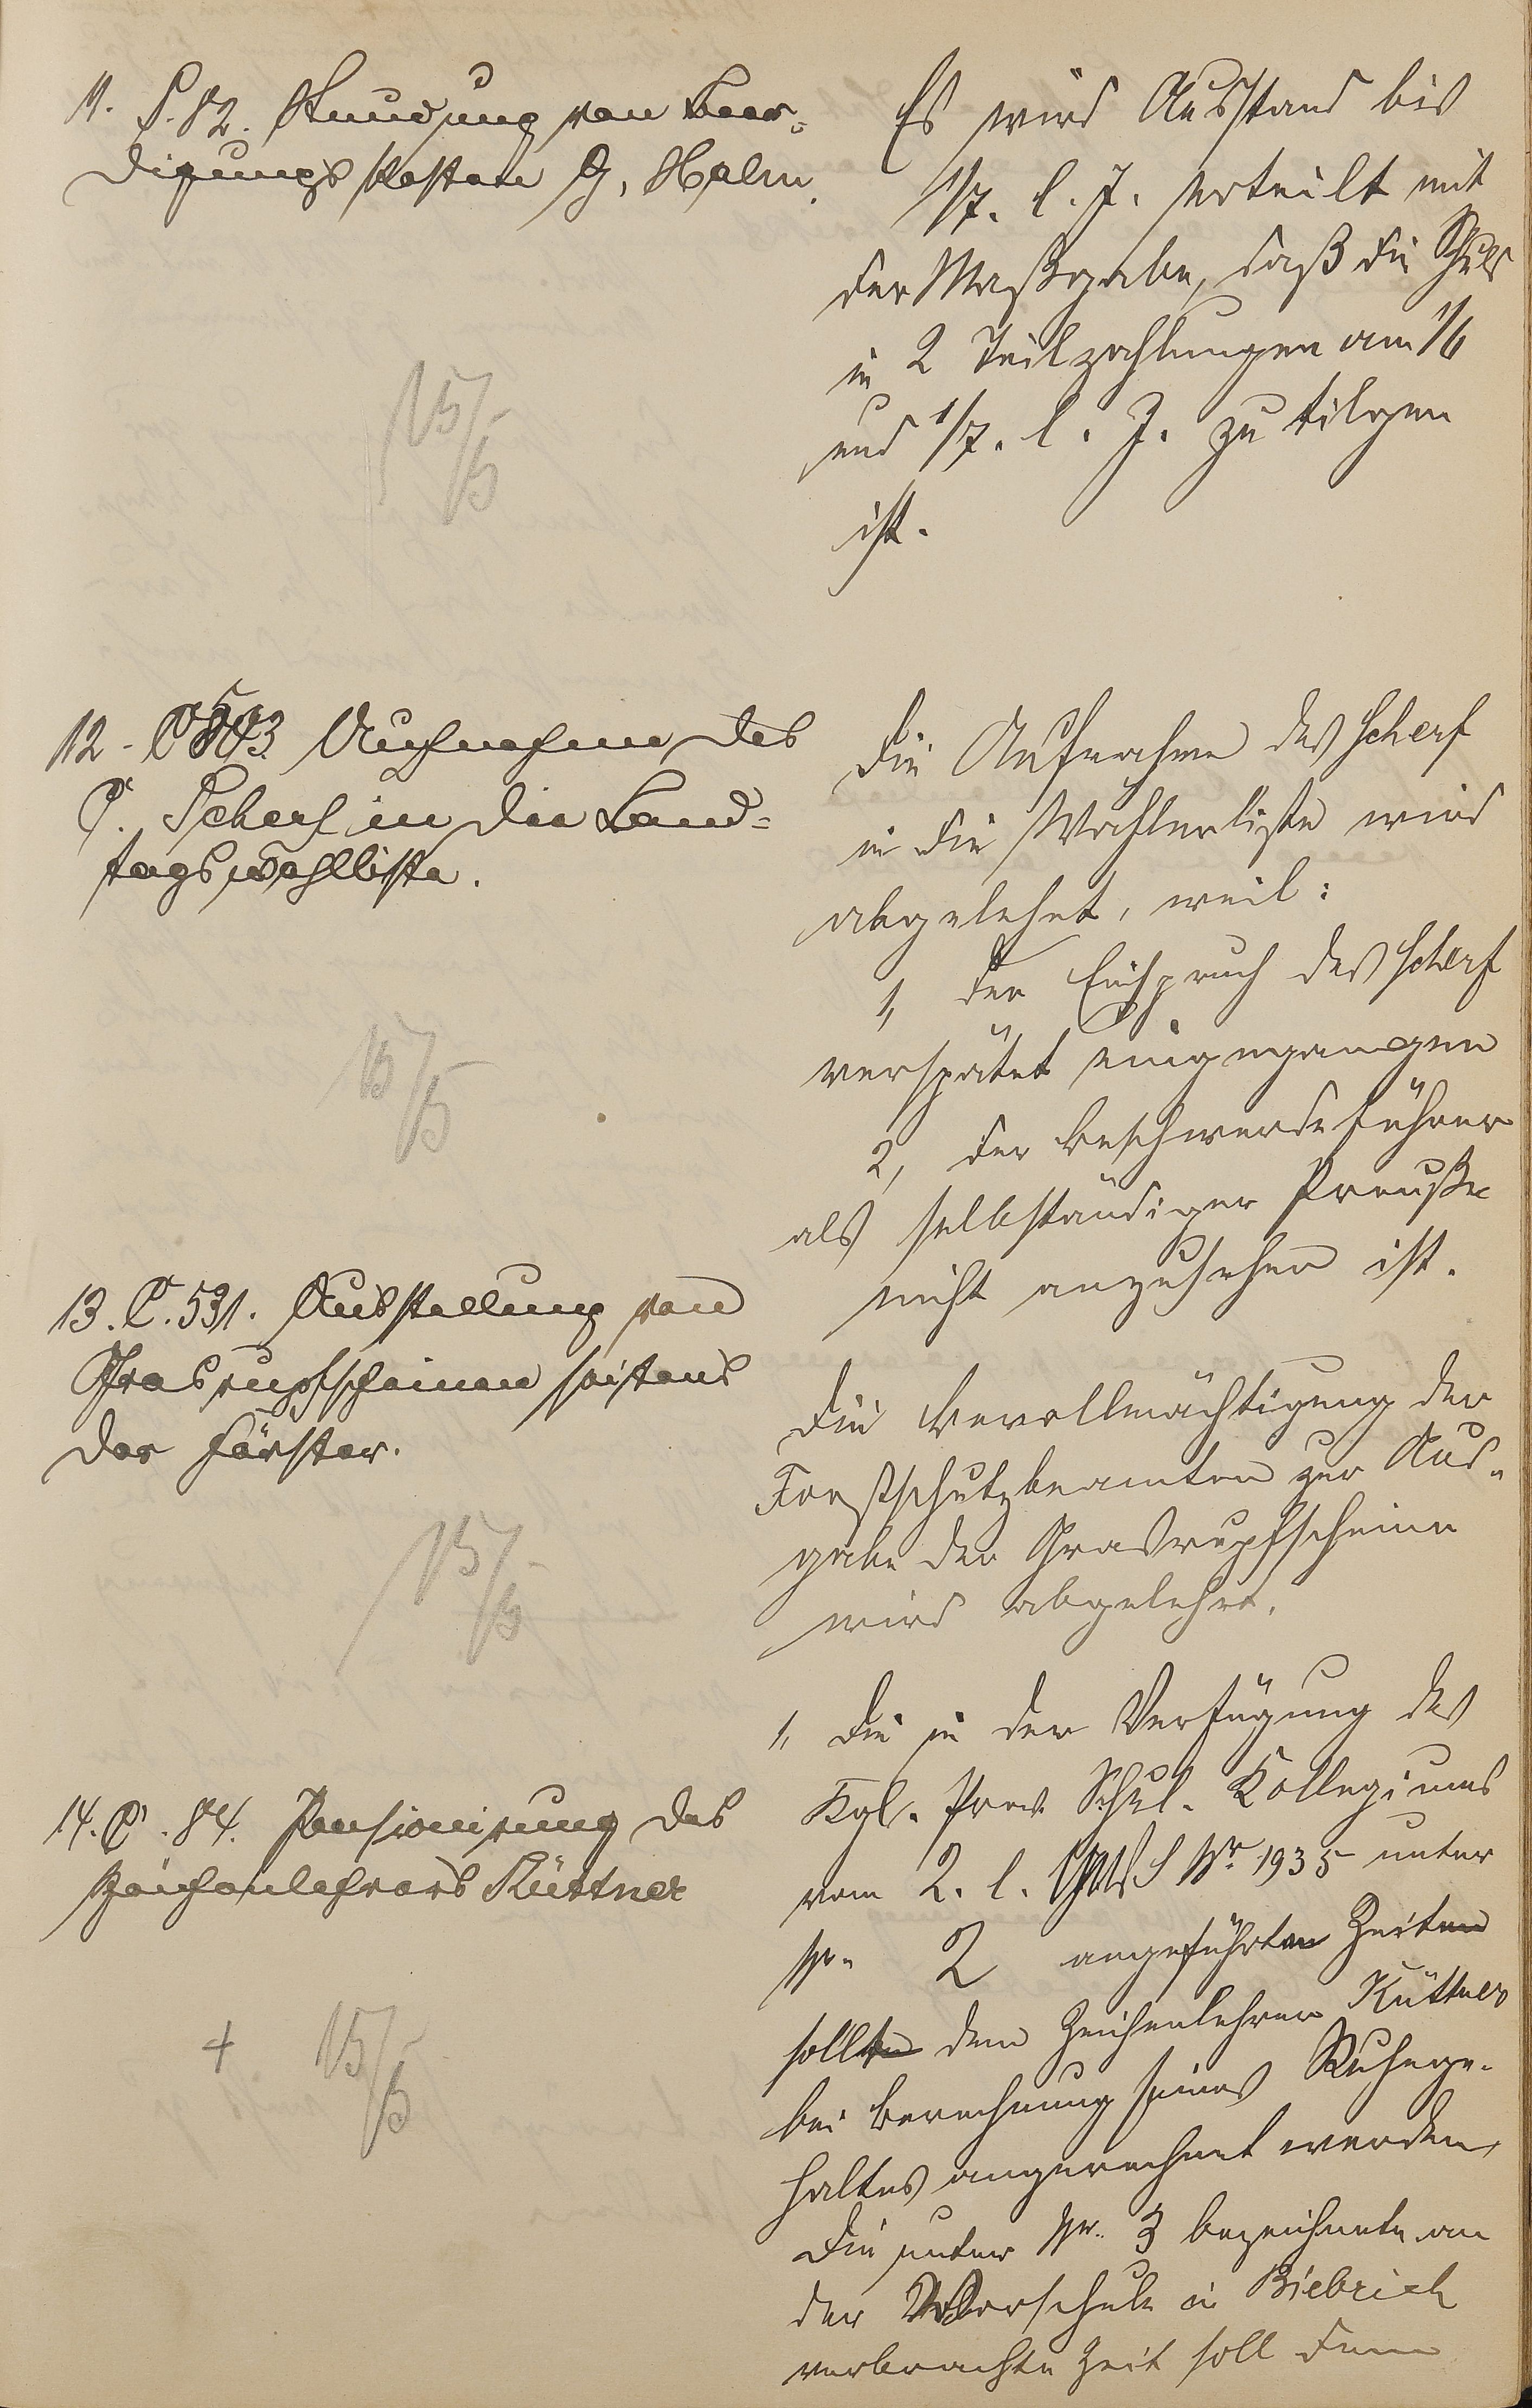 11. S. 82. Stundung von Beer-
digungskosten G. Halm.
Es wird Ausstand bis
1/7. l. J. erteilt mit
der Maßgabe, daß die Schuld
in 2 Teilzahlungen am 1/6
und 1/7. l. J. zu tilgen
ist.
15/5
12. C 503 Aufnahme des
C. Scherf in die Land-
tagswahlliste.
Die Aufnahme des Scherf
in die Wählerliste wird
abgelehnt, weil:
1, der Einspruch des Scherf
verspätet eingegangen
2, der Beschwerdeführer
als selbständiger Preuße
nicht anzusehen ist.
15/5
13. C. 531. Ausstellung von
Grasrupfscheinen seitens
der Förster.
Die Bevollmächtigung der
Forstschutzbeamten zur Aus-
gabe der Grasrupfscheine
wird abgelehnt.
15/5
14. C. 84. Pensionierung des
Zeichenlehrers Küttner
1, Die in der Verfügung des
Kgl. Prov. Schul. Kollegiums
vom 2. l. Mts S Nr. 1935 unter
Nr. 2 angeführten Zeiten
sollen dem Zeichenlehrer Küttner
bei Berechnung seines Ruhege-
haltes angerechnet werden,
Die unter Nr. 3 bezeichnete an
der Vorschule in Biebrich
verbrachte Zeit soll dem
+ 15/5